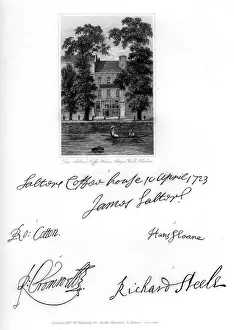 Don Saltero's Coffee House, Cheyne Walk, Chelsea.
Salters Coffee house 10 April 1723
James Salters
Ro: Cotton
Hans Sloane
Richard Steele
London